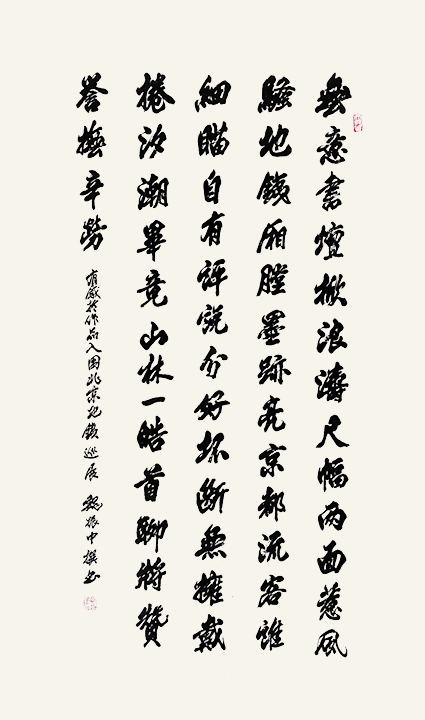 無意書壇掀浪濤尺幅两面惹風
騷地鐵廂膛墨跡亮京都流客誰
細瞄自有評説分好坏斷無擁戴
捲汐潮畢竟山林一皓首聊將贊
譽撫辛勞
有感於作品入圍北京地鐵巡展 魏振中撰书